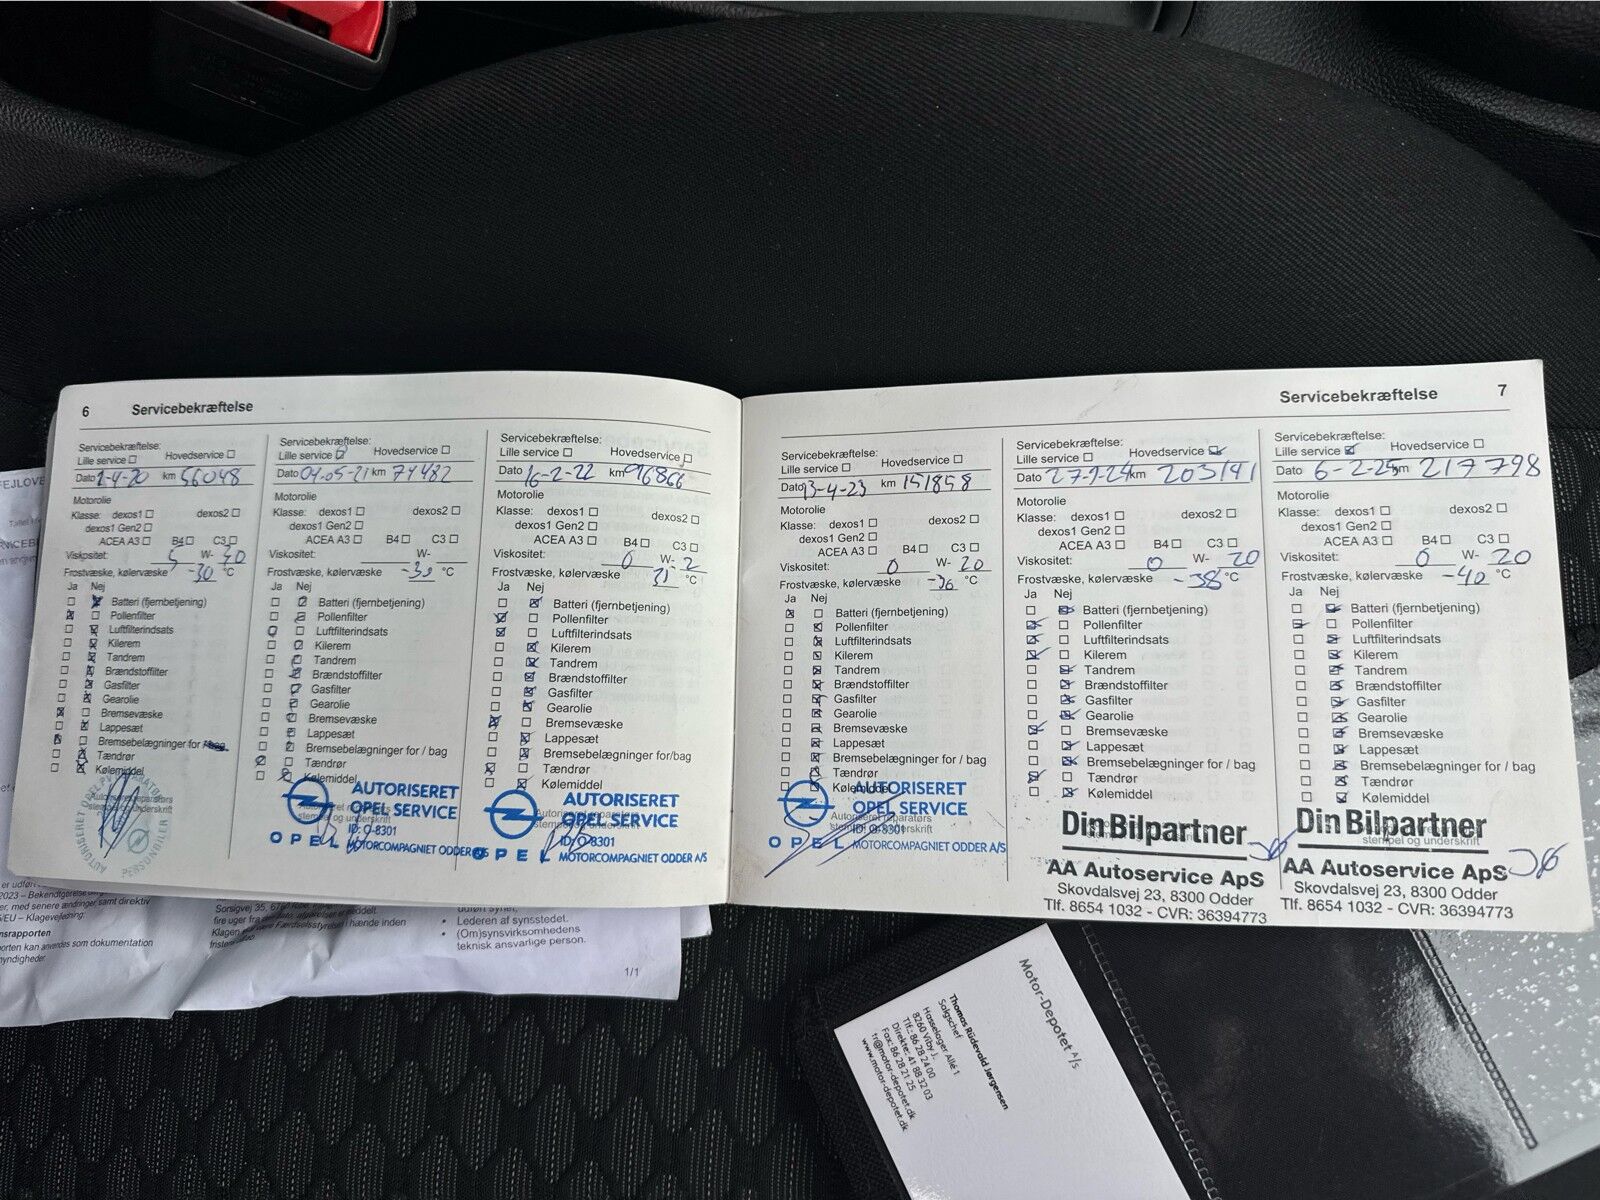 6 Servicebekræftelse
Servicebekræftelse:
Lille service Hovedservice
Dato -4-20 km 56048
Motorolie
Klasse: dexos1 dexos2
dexos1 Gen2
ACEA A3 B4 C3
Viskositet: 5 W-
Frostvæske, kølervæske -30 °C
Ja Nej
Batteri (fjernbetjening)
Pollenfilter
Luftfilterindsats
Kilerem
Tandrem
Brændstoffilter
Gasfilter
Gearolie
Bremsevæske
Lappesæt
Bremsebelægninger for / bag
Tændrør
Kølemiddel
Servicebekræftelse:
Lille service Hovedservice
Dato 04-05-21 km
Motorolie
Klasse: dexos1 dexos2
dexos1 Gen2
ACEA A3 B4 C3
Viskositet: W-
Frostvæske, kølervæske °C
Ja Nej
Batteri (fjernbetjening)
Pollenfilter
Luftfilterindsats
Kilerem
Tandrem
Brændstoffilter
Gasfilter
Gearolie
Bremsevæske
Lappesæt
Bremsebelægninger for / bag
Tændrør
Kølemiddel
AUTORISERET
OPEL SERVICE
ID: O-8301
OPEL MOTORCOMPAGNIET ODDER
Servicebekræftelse:
Lille service Hovedservice
Dato 16-2-22 km 96866
Motorolie
Klasse: dexos1 dexos2
dexos1 Gen2
ACEA A3 B4 C3
Viskositet: 0 W- 2
Frostvæske, kølervæske °C
Ja Nej
Batteri (fjernbetjening)
Pollenfilter
Luftfilterindsats
Kilerem
Tandrem
Brændstoffilter
Gasfilter
Gearolie
Bremsevæske
Lappesæt
Bremsebelægninger for/bag
Tændrør
Kølemiddel
AUTORISERET
OPEL SERVICE
ID: O-8301
OPEL MOTORCOMPAGNIET ODDER A/S
Servicebekræftelse 7
Servicebekræftelse:
Lille service Hovedservice
Dato 13-4-23 km 151858
Motorolie
Klasse: dexos1 dexos2
dexos1 Gen2
ACEA A3 B4 C3
Viskositet: 0 W- 20
Frostvæske, kølervæske -36 °C
Ja Nej
Batteri (fjernbetjening)
Pollenfilter
Luftfilterindsats
Kilerem
Tandrem
Brændstoffilter
Gasfilter
Gearolie
Bremsevæske
Lappesæt
Bremsebelægninger for / bag
Tændrør
Kølemiddel
AUTORISERET
OPEL SERVICE
Autoriseret reparatørs
stempel og underskrift
ID: O-8301
OPEL MOTORCOMPAGNIET ODDER A/S
Servicebekræftelse:
Lille service Hovedservice
Dato km 203141
Motorolie
Klasse: dexos1 dexos2
dexos1 Gen2
ACEA A3 B4 C3
Viskositet: 0 W- 20
Frostvæske, kølervæske -38 °C
Ja Nej
Batteri (fjernbetjening)
Pollenfilter
Luftfilterindsats
Kilerem
Tandrem
Brændstoffilter
Gasfilter
Gearolie
Bremsevæske
Lappesæt
Bremsebelægninger for / bag
Tændrør
Kølemiddel
DinBilpartner
AA Autoservice ApS
Skovdalsvej 23, 8300 Odder
Tlf. 8654 1032 - CVR: 36394773
Servicebekræftelse:
Lille service Hovedservice
Dato 6-2-25 km 217798
Motorolie
Klasse: dexos1 dexos2
dexos1 Gen2
ACEA A3 B4 C3
Viskositet: 0 W- 20
Frostvæske, kølervæske -40 °C
Ja Nej
Batteri (fjernbetjening)
Pollenfilter
Luftfilterindsats
Kilerem
Tandrem
Brændstoffilter
Gasfilter
Gearolie
Bremsevæske
Lappesæt
Bremsebelægninger for / bag
Tændrør
Kølemiddel
DinBilpartner
stempel og underskrift
AA Autoservice ApS
Skovdalsvej 23, 8300 Odder
Tlf. 8654 1032 - CVR: 36394773
2023 – Bekendtgørelse
er, med senere ændringer, samt direktiv
/EU – Klagevejledning.
nsrapporten
orten kan anvendes som dokumentation
myndigheder
Sorsigvej 35, 6760 Ribe
Klagen hænde inden
Lederen af synsstedet.
(Om)synsvirksomhedens
teknisk ansvarlige person.
1/1
Motor-Depotet A/S
Thomas Rüdevald Jørgensen
Salgschef
Hasselager Allé 1
8260 Viby J.
Tlf.: 86 28 24 00
Direkte: 41 88 32 03
Fax: 86 28 21 25
trj@motor-depotet.dk
www.motor-depotet.dk